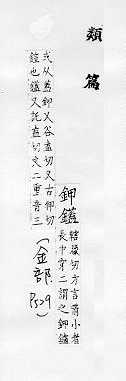 類篇
鉀鑉
轄切方言箭小者
長中穿二謂之鉀鑉
或从蓋鉀又谷盍切又古狎切
鎧也鑉又託盍切文二重音三
(金部 P529)